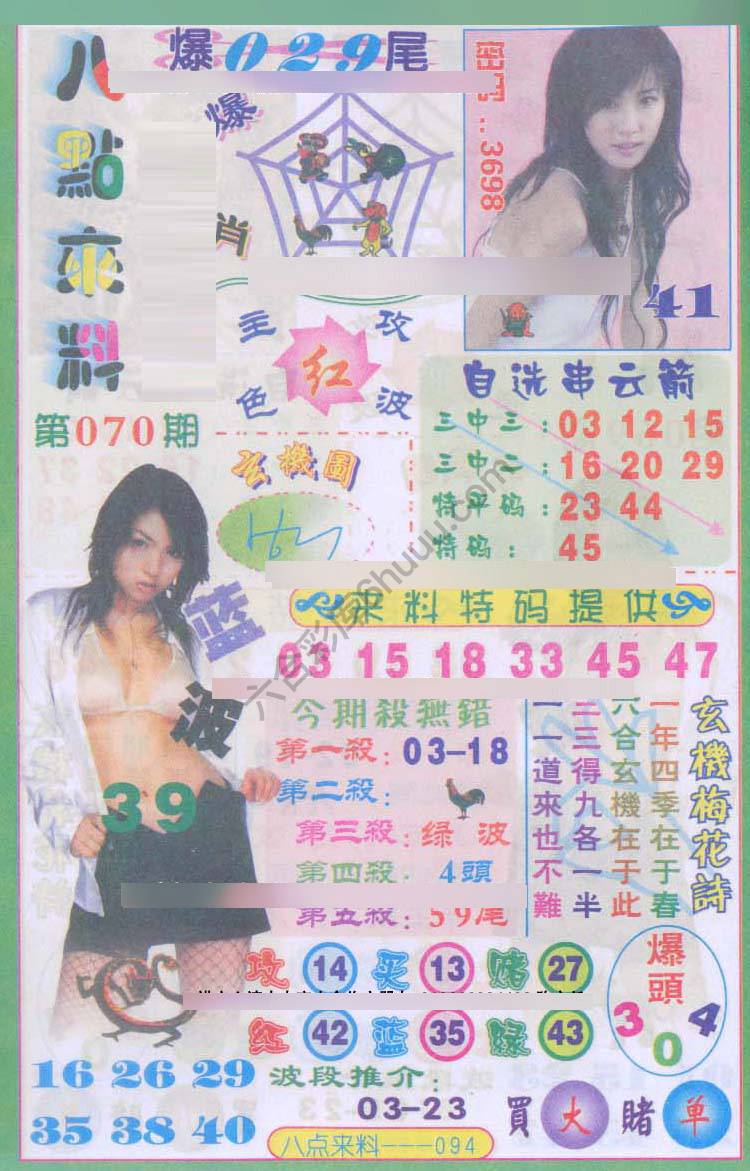 八點來料
第070期
爆029尾
爆
肖
密码:3698
41
主攻
红
色波
自选串云箭
三中三:03 12 15
三中二:16 20 29
特平码:23 44
特码:45
玄機圖
来料特码提供
03 15 18 33 45 47
蓝
波
39
今期殺無錯
第一殺:03-18
第二殺:
第三殺:绿波
第四殺:4頭
第五殺:59尾
玄機梅花詩
一年四季在于春
六合玄機在于此
二三得九各一半
一一道來也不難
攻 14 买 13 赌 27
红 42 蓝 35 绿 43
爆頭
3 0 4
16 26 29
35 38 40
波段推介:
03-23
買大賭单
八点来料---094
六合彩图shuuu.com